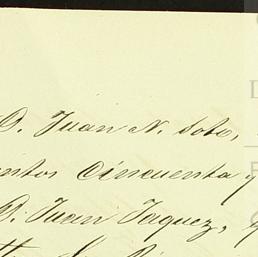 D. Juan N. Soto,
entos cincuenta y
D. Juan Jaquez, y